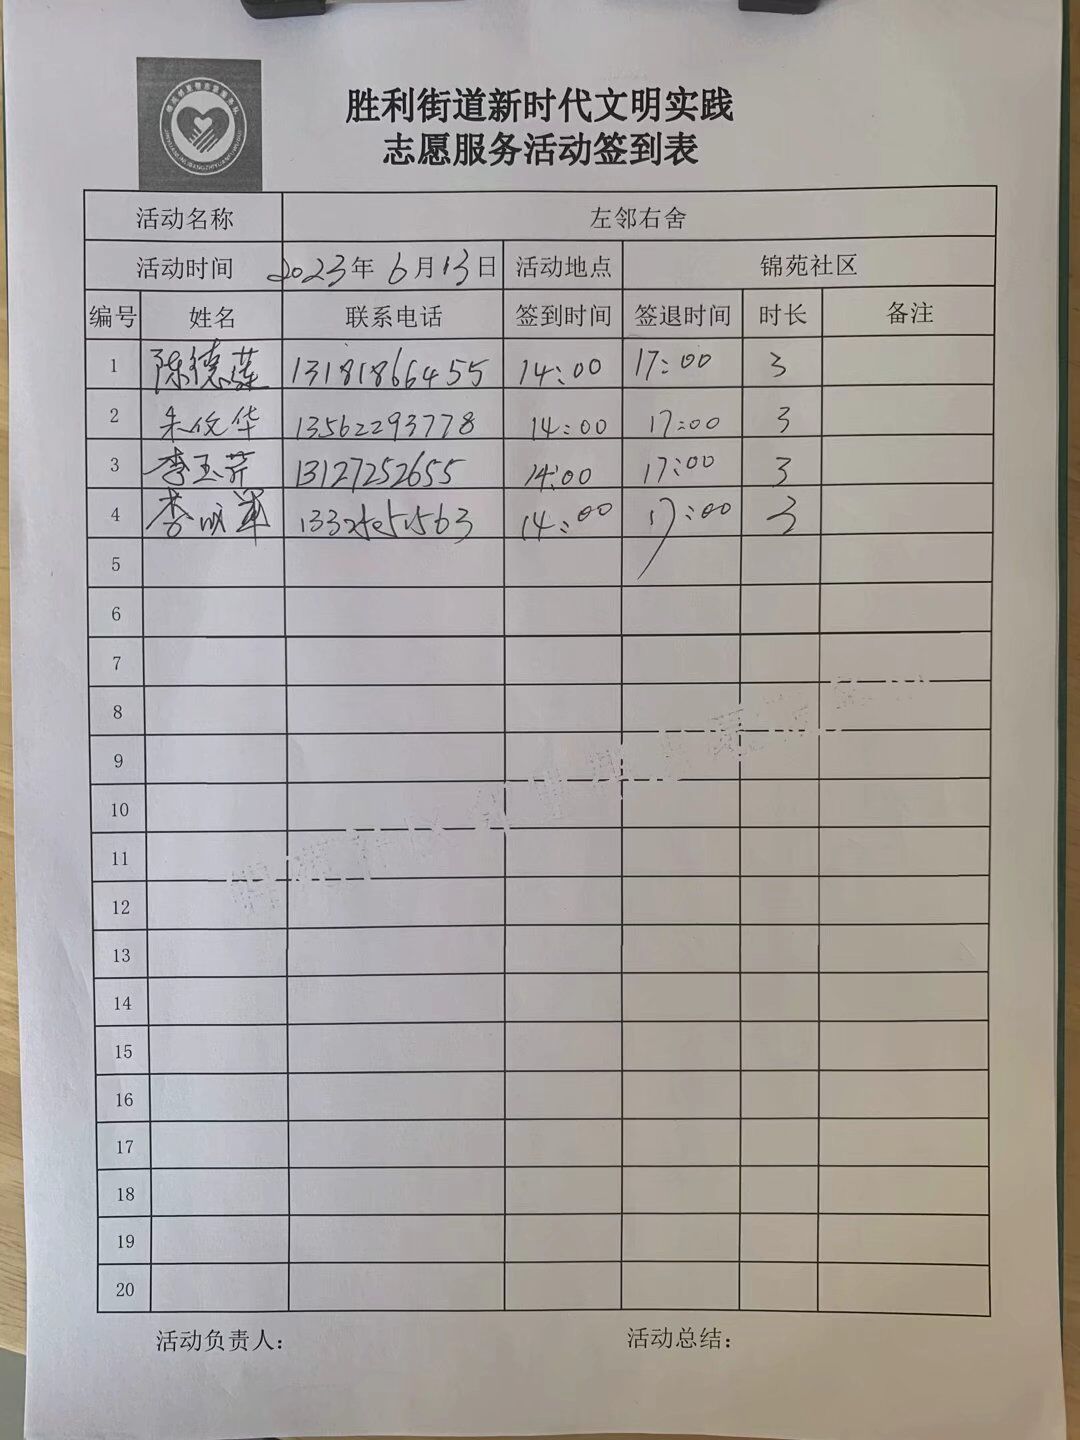 胜利街道新时代文明实践
志愿服务活动签到表
活动名称 左邻右舍
活动时间 2023年6月13日 活动地点 锦苑社区
编号 姓名 联系电话 签到时间 签退时间 时长 备注
1 陈德莲 13181866455 14:00 17:00 3
2 朱俊华 13562293778 14:00 17:00 3
3 李玉芹 13127252655 14:00 17:00 3
4 李明军 14:00 17:00 3
5
6
7
8
9
10
11
12
13
14
15
16
17
18
19
20
活动负责人： 活动总结：